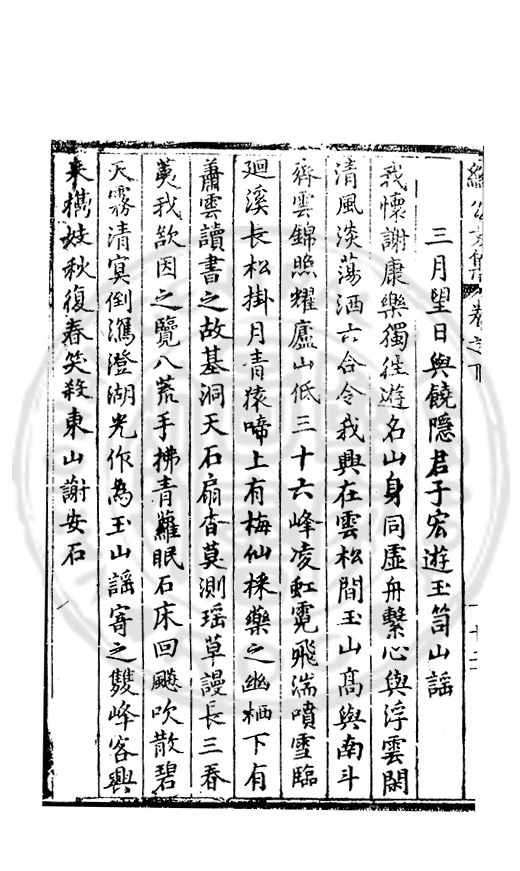 三月望日與饒隱君子宏遊玉笥山謡
我懷謝康樂獨往遊名山身同虛舟繫心與浮雲閑
清風淡蕩洒六合令我興在雲松間玉山髙與南斗
齊雲錦照耀廬山低三十六峰凌虹霓飛湍噴雪臨
廻溪長松掛月青猿啼上有梅仙採藥之幽栖下有
蕭雲讀書之故基洞天石扇杳莫測瑶草謾長三春
荑我欲因之覽八荒手拂青蘿眠石床回飈吹散碧
天霧清寅倒瀉澄湖光作為玉山謡寄之雙峰客興
来擕妓秋復春笑殺東山謝安石